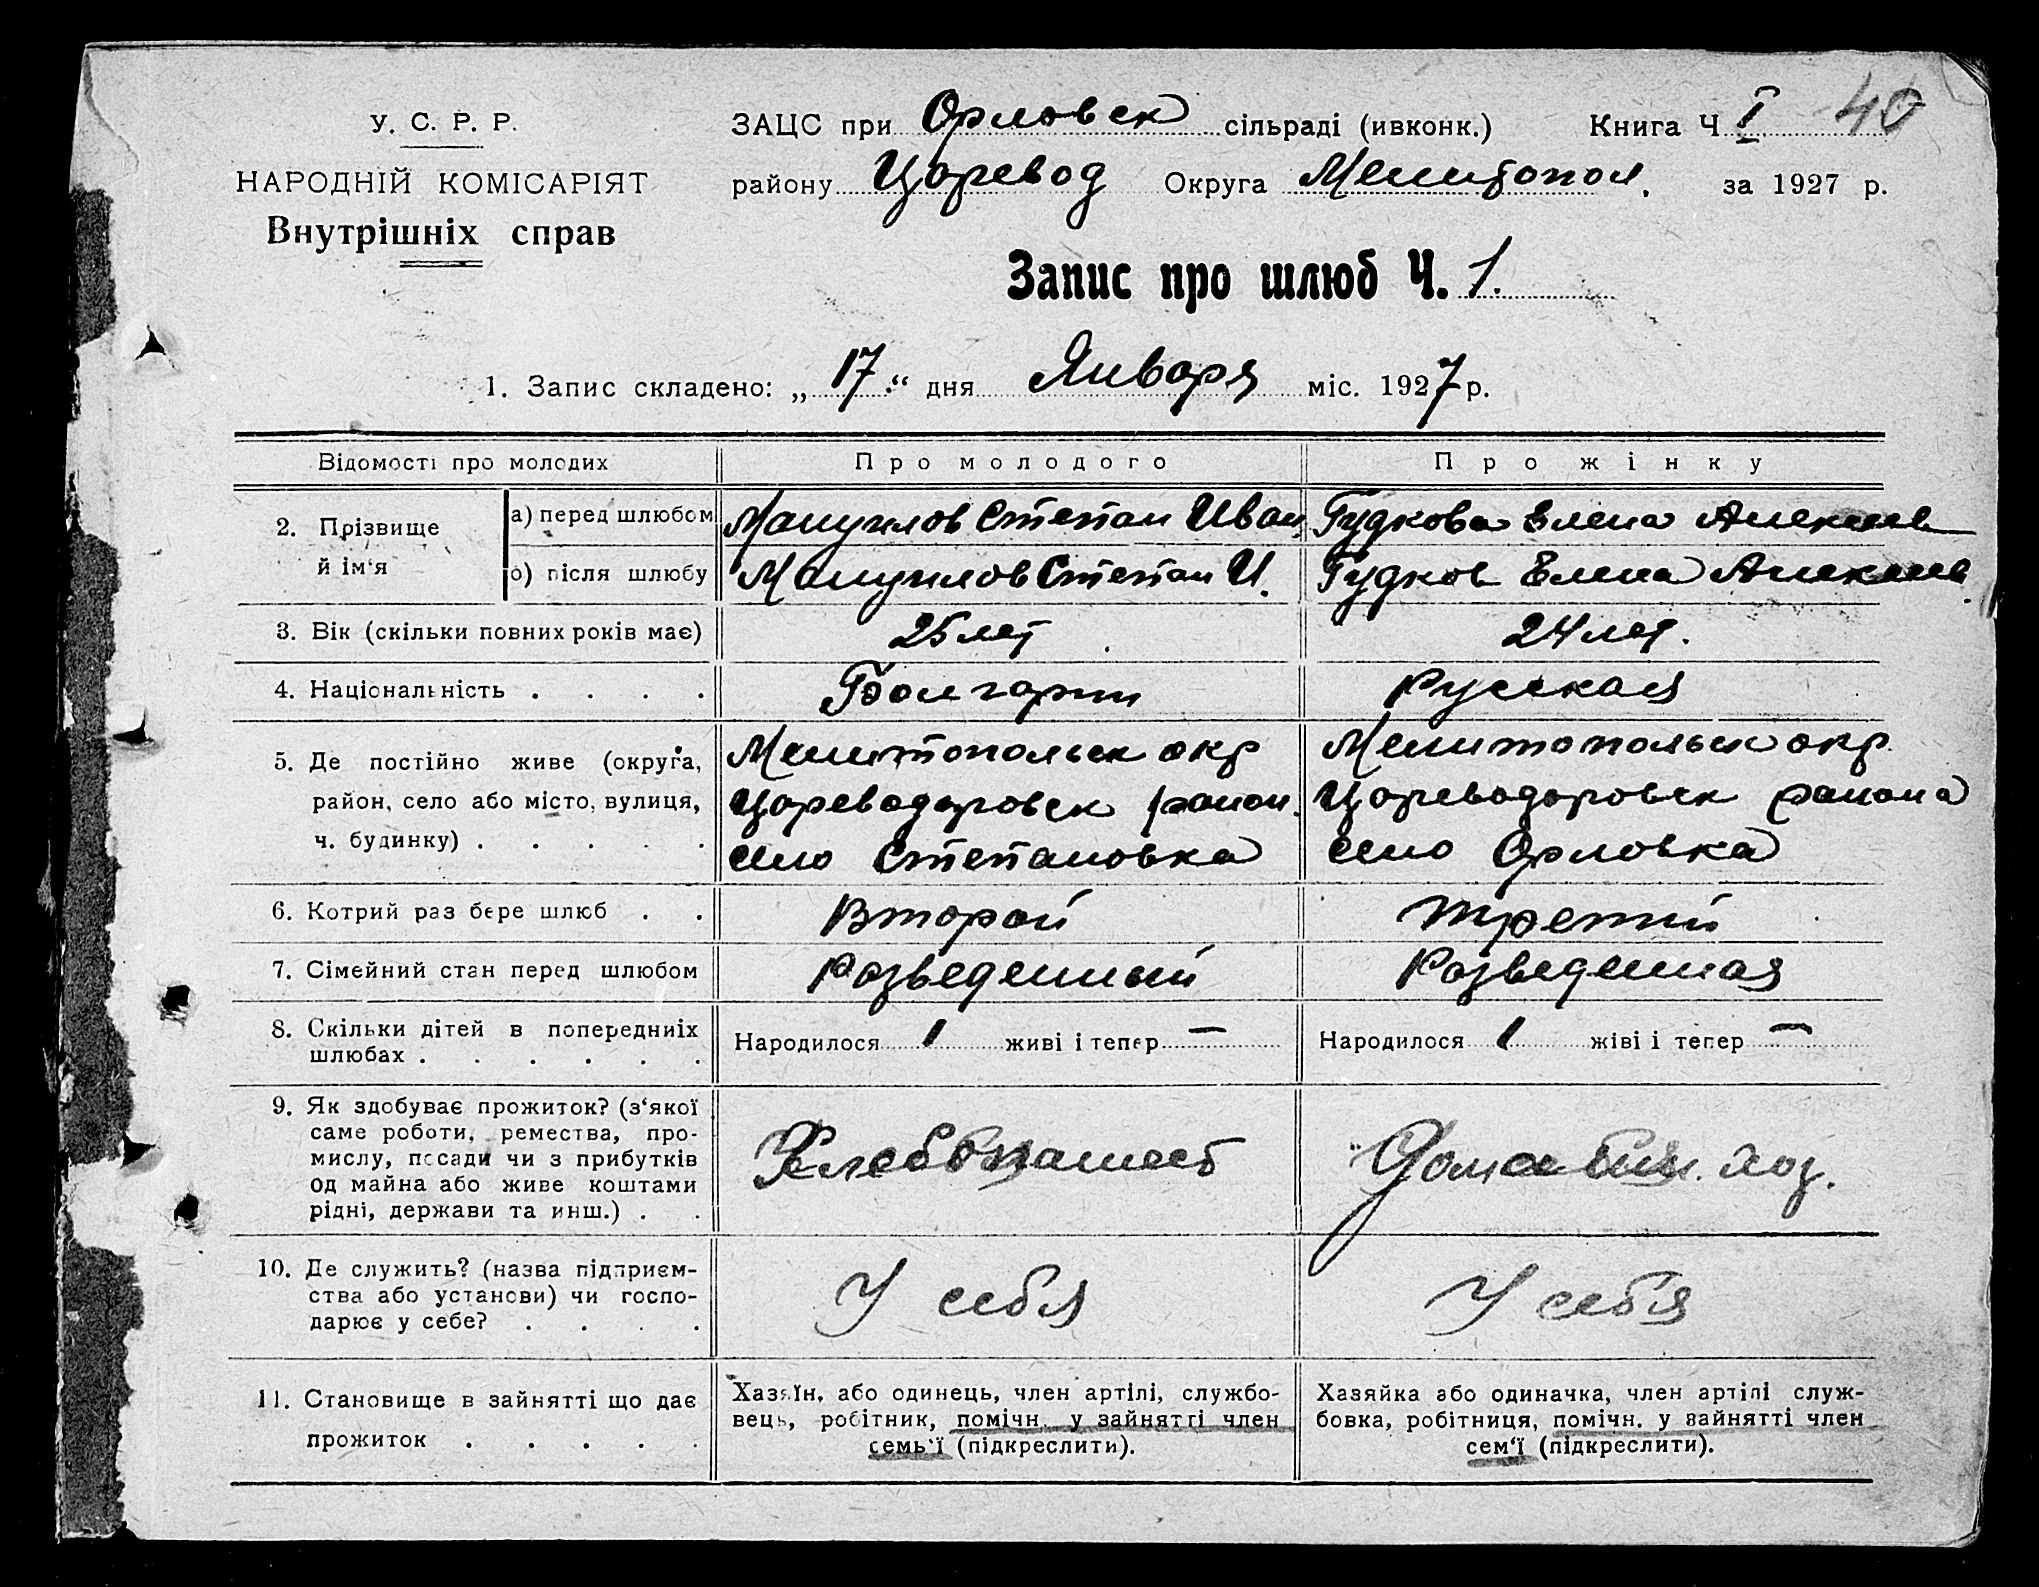 У. С. Р. Р.
НАРОДНІЙ КОМІСАРІЯТ
Внутрішніх справ
ЗАЦС при Орловск сільраді (ивконк.) Книга Ч I 40
району Царевод Округа Мелитопол. за 1927 р.
Запис про шлюб Ч. 1.
1. Запис складено: „17“ дня Января міс. 1927 р.
Відомості про молодих Про молодого Про жінку
2. Прізвище й ім'я
а) перед шлюбом Мануилов Степан Иван. Гудкова Елена Алексеев
б) після шлюбу Мануилов Степан И. Гудков Елена Алексеев.
3. Вік (скільки повних років має) 25 лет 24 лет.
4. Національність . . . . Болгарин Русская
5. Де постійно живе (округа, Мелитопольск окр Мелитопольск окр.
район, село або місто, вулиця, Цареводаровск район. Цареводаровск района
ч. будинку) . . . . . село Степановка село Орловка
6. Котрий раз бере шлюб . . Второй Третий
7. Сімейний стан перед шлюбом Разведенный Разведенная
8. Скільки дітей в попередниіх Народилося 1 живі і тепер — Народилося 1 жіві і тепер —
шлюбах . . . . . .
9. Як здобуває прожиток? (з'якої
саме роботи, ремества, про-
мислу, посади чи з прибутків Хлебопашест Домашн. хоз.
од майна або живе коштами
рідні, держави та инш.) . .
10. Де служить? (назва підприєм-
ства або установи) чи госпо- У себя У себя
дарює у себе? . . . .
11. Становище в зайнятті що дає
прожиток . . . . .
Хазяїн, або одинець, член артілі, службо-
вець, робітник, помічн. у зайнятті член
семь'ї (підкреслити).
Хазяйка або одиначка, член артілі служ-
бовка, робітниця, помічн. у зайнятті член
сем'ї (підкреслити).